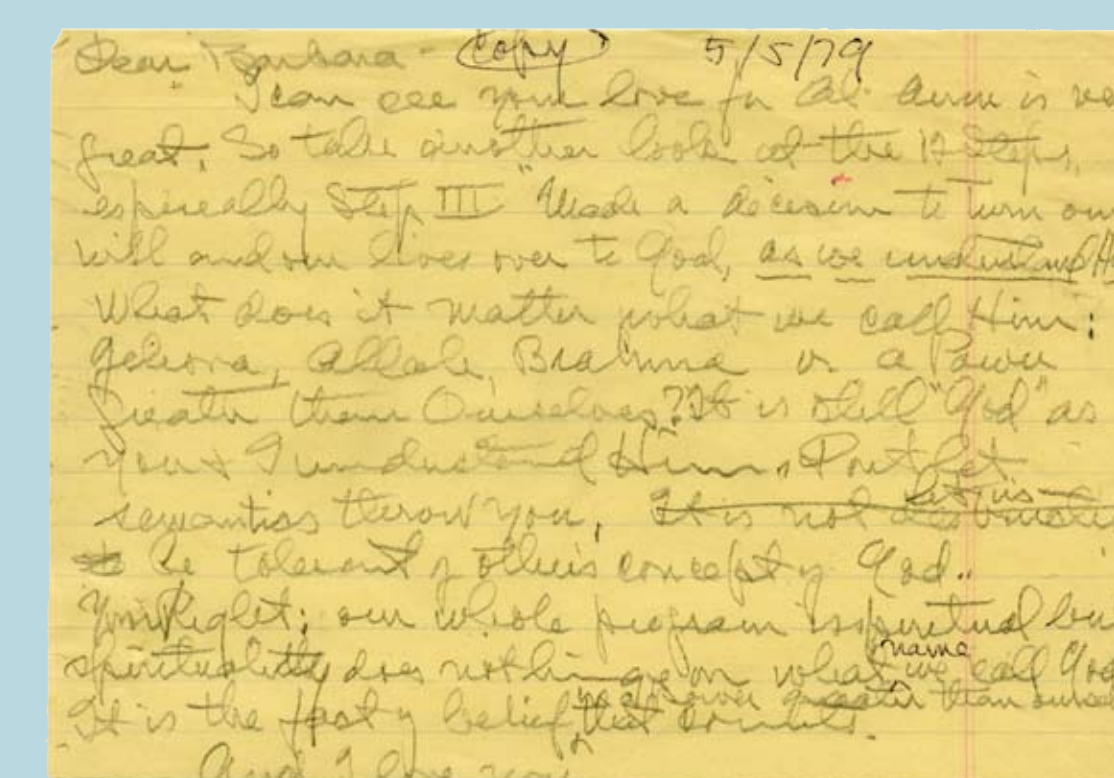 Dear Barbara - Copy 5/5/79
I can see your love for Al-Anon is ve
great. So take another look at the 12 Steps,
especially Step III "Made a decision to turn our
will and our lives over to God, as we understand H
What does it matter what we call Him:
Jehova, Allah, Brahma or a Power
Greater than Ourselves? It is still "God" as
you & I understand Him. Don't let
semantics throw you, It is not let us
be tolerant of other's concept of God..
You're Right; our whole program is spiritual bu
name
spirituality does not hinge on what we call God
in a power greater than ourse
It is the fact of belief that counts.
And I love you